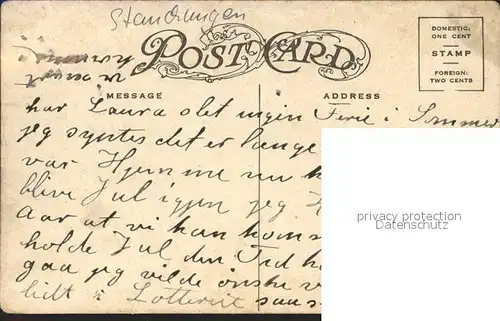 Standrungen
POST CARD
DOMESTIC:
ONE CENT
STAMP
FOREIGN:
TWO CENTS
MESSAGE
ADDRESS
har Laura slet ingen Ferie i Sommer
jeg syntes det er længe
var Hjemme nu
blive Jul igjen jeg
Aar at vi kan
holde Jul den Tid
gaa jeg vilde ønske
lidt i Lotteriet
privacy protection
Datenschutz